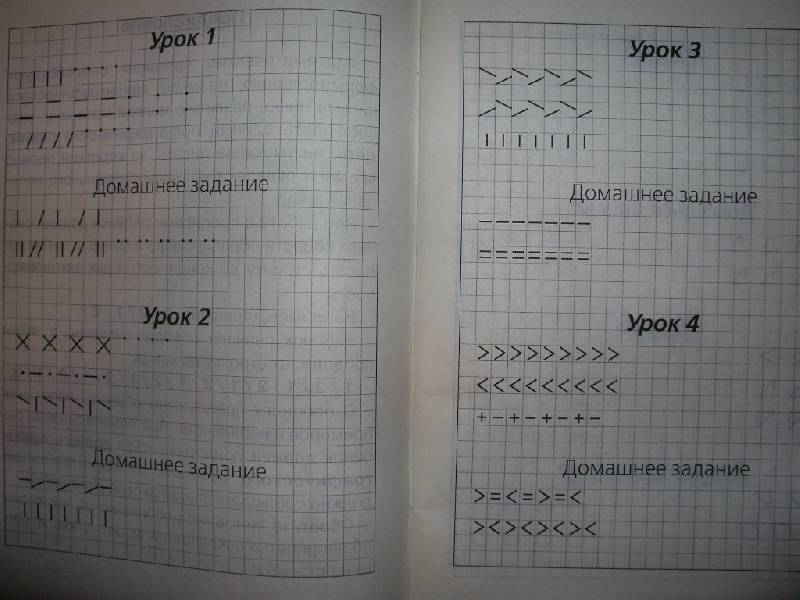 Урок 1
| | | | · · · ·
— — — — · · ·
/ / / / · · · ·
Домашнее задание
| / | / |
|| // || // || ·· ·· ·· ·· ··
Урок 2
× × × × · · · ·
· — · — · — ·
\ | \ | \ | \
Домашнее задание
— / — / — / —
| | | | | | |
Урок 3
\ / \ / \ / \
\ / \ / \ / \ /
| | | | | | |
Домашнее задание
— — — — — — —
= = = = = = =
Урок 4
> > > > > > > > >
< < < < < < < < <
+ − + − + − + −
Домашнее задание
> = < = > = <
> < > < > < > <